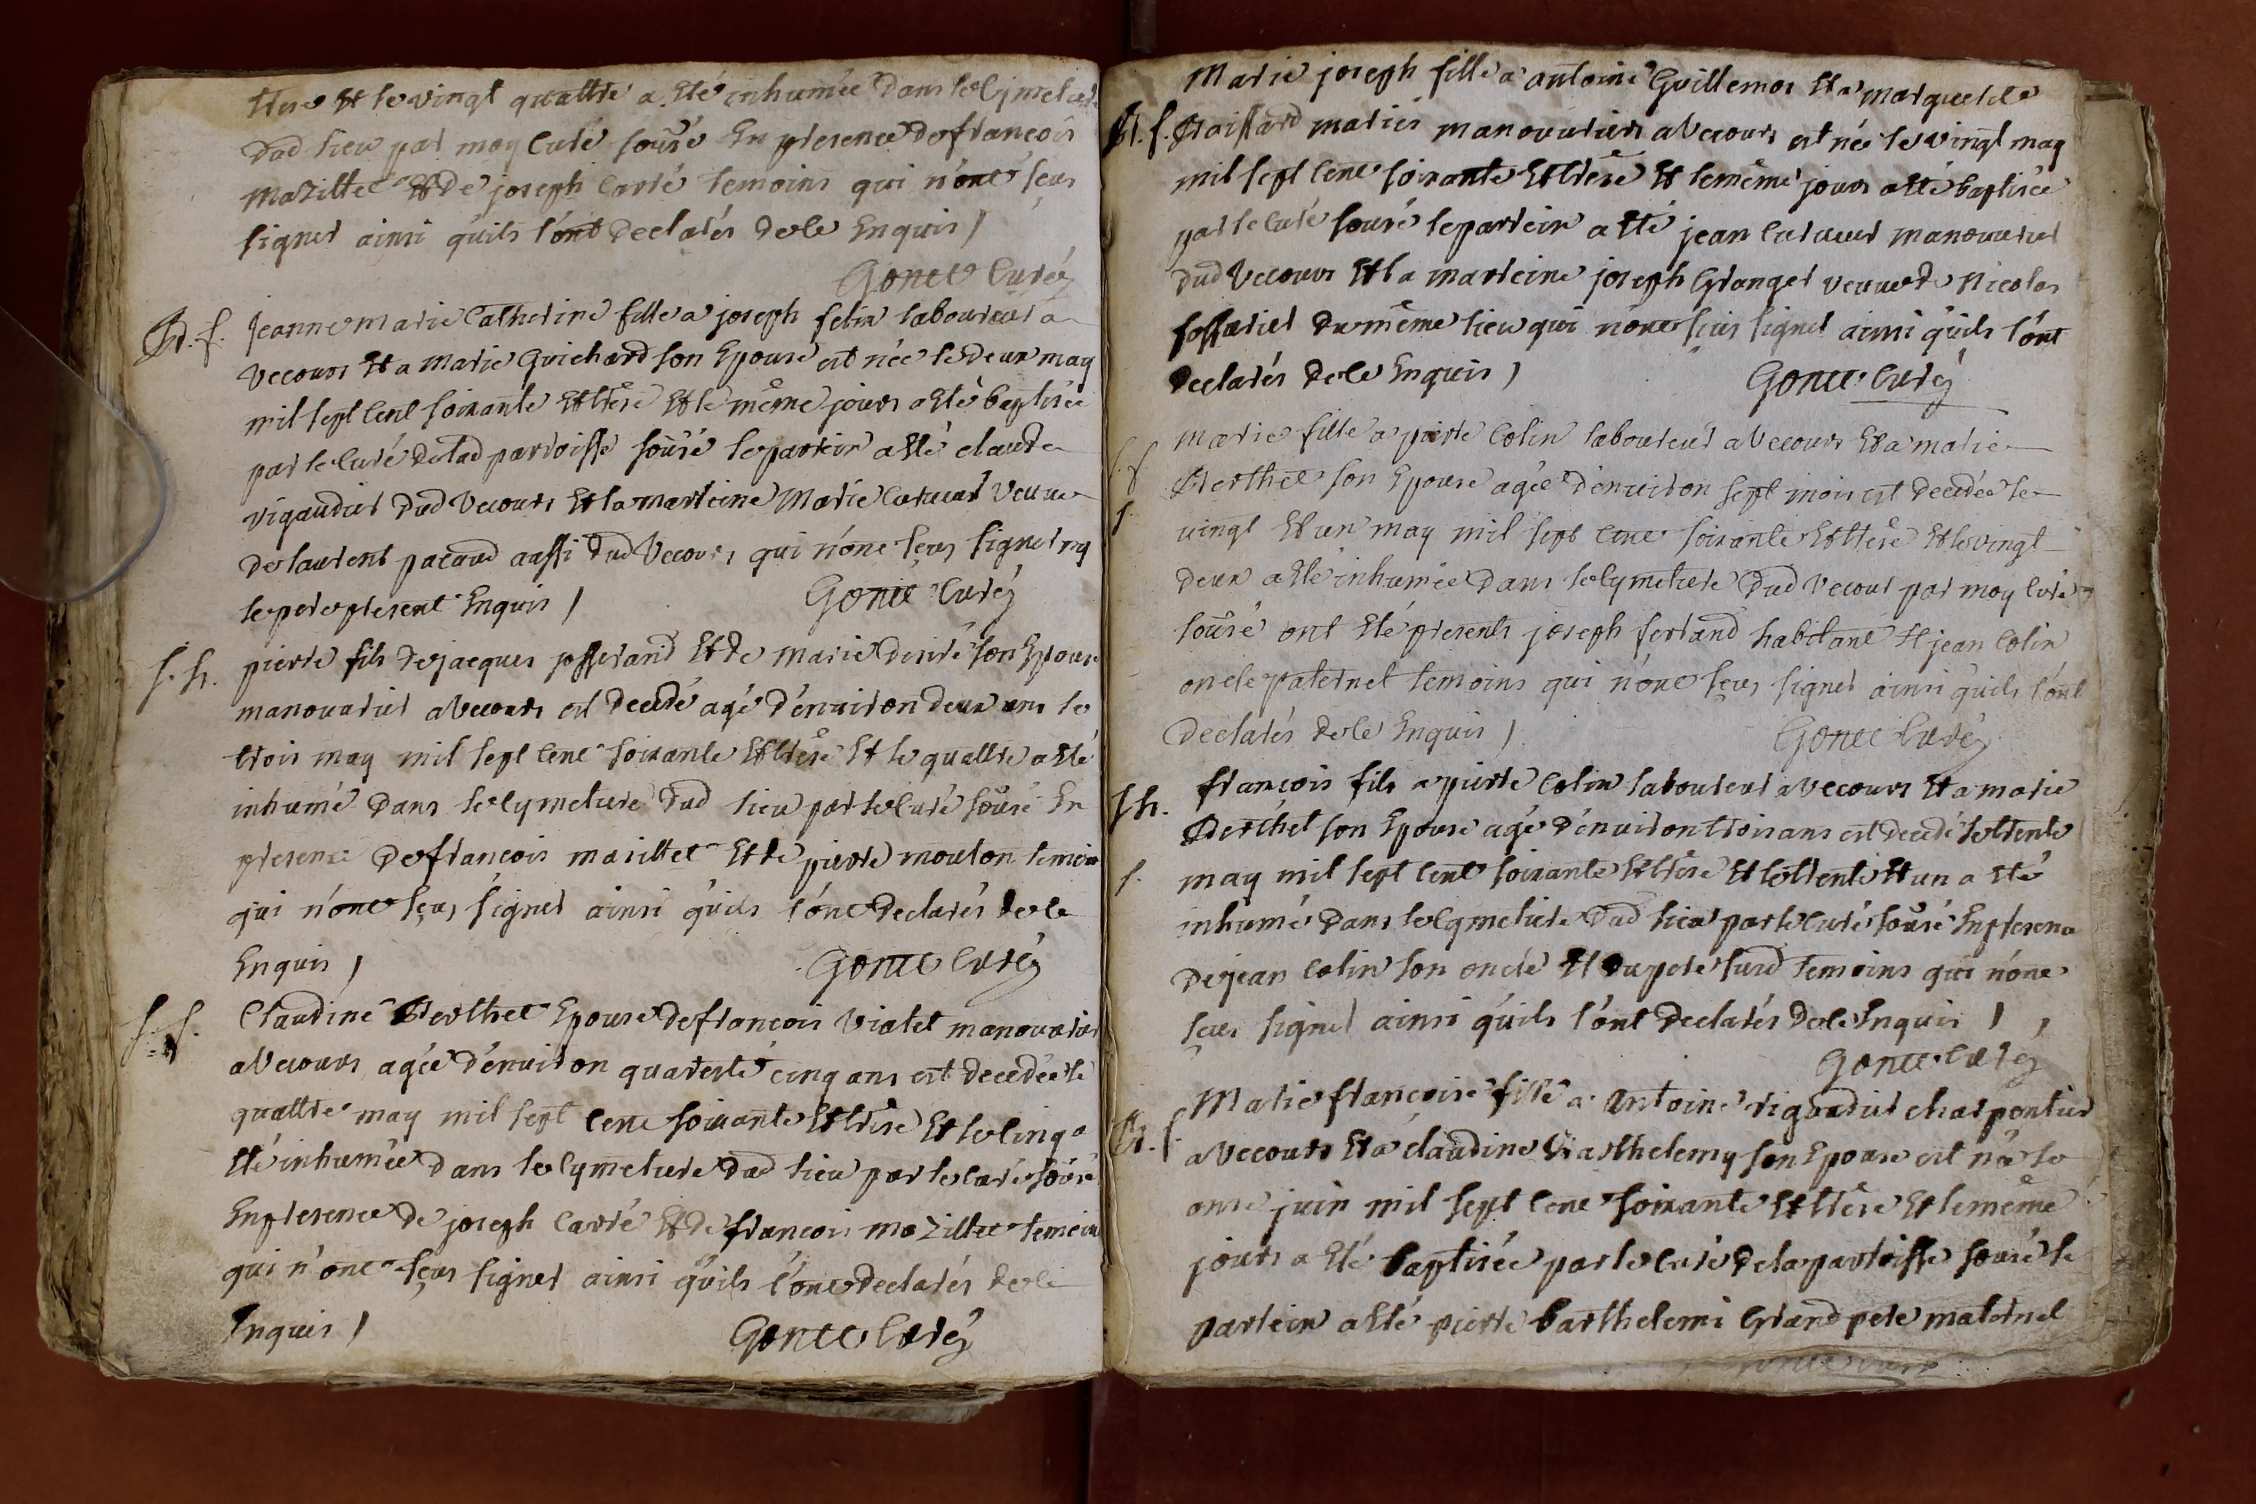 trese et le vingt quattre a eté inhumée dans le cymetiere
dud lieu par moy curé sousé en presence de francois
mazillet et de joseph carré temoins qui n'ont sçus
signer ainsi qu'ils l'ont declarés de ce enquis /
Gonet curéz
B. f. jeanne marie catherine fille a joseph felix laboureur a
vecours et a marie guichard son epouse est née le deux may
mil sept cent soixante et trese et le même jours a eté baptisée
par le curé de lad parroisse sousé le parrein a eté claude
rigaudier dud vecours et la marreine marie veuve
de laurent pacaud aussi dud vecours, qui n'ont sçus signer ny
le pere present enquis /
Gonet curéz
s. h. pierre fils de jacques josserand et de marie desiré son epouse
manouvrier a vecours est decedé agé d'environ deux ans le
trois may mil sept cent soixante et trese et le quattre a eté
inhumé dans le cymetiere dud lieu par le curé sousé en
presence de francois mazillet et de pierre mouton temoin
qui n'ont sçus signer ainsi qu'ils l'ont declarés de ce
enquis /
Gonet curéz
s. f. Claudine Berthet epouse de francois violet manouvrier
a vecours agée d'environ quarente cinq ans est decedée le
quattre may mil sept cent soixante et trese et le cinq a
eté inhumée dans le cymetiere dud lieu par le curé sousé
en presence de joseph carré et de francois mazillet temoin
qui n'ont sçus signer ainsi qu'ils l'ont declarés de ce
enquis /
Gonet curéz
marie joseph fille a antoine Guillemot et a marguerite
B. f. Broissard mariés manouvriers a vecours est née le vingt may
mil sept cent soixante et trese et le même jours a eté baptisée
par le curé sousé le parrein a eté jean manouvrier
dud vecours et la marreine joseph Granget veuve de nicolas
du même lieu qui n'ont sçus signer ainsi qu'ils l'ont
declarés de ce enquis /
Gonet curéz
s. f. marie fille a pierre colin laboureur a vecours et a marie
Berthet son epouse agée d'environ sept mois est decedée le
s. vingt et un may mil sept cent soixante et trese et le vingt
deux a eté inhumée dans le cymetiere dud vecour par moy curé
sousé ont eté presents joseph ferrand habitant et jean colin
oncle paternel temoins qui n'ont sçus signer ainsi qu'ils l'ont
declarés de ce enquis /
Gonet curéz
s h. francois fils a pierre colin laboureur a vecours et a marie
Berthet son epouse agé d'environ trois ans est decedé le trente
s. may mil sept cent soixante et trese et le trente et un a eté
inhumé dans le cymetiere dud lieu par le curé sousé en presence
de jean colin son oncle et du pere susd temoins qui n'ont
sçus signer ainsi qu'ils l'ont declarés de ce enquis / ,
Gonet curéz
Marie francoise fille a antoine rigaudier charpentier
B. f. a vecours et a claudine Barthelemy son epouse est née le
onse juin mil sept cent soixante et trese et le même
jours a eté baptisée par le curé de la parroisse sousé le
parrein a eté pierre barthelemi grand pere maternel